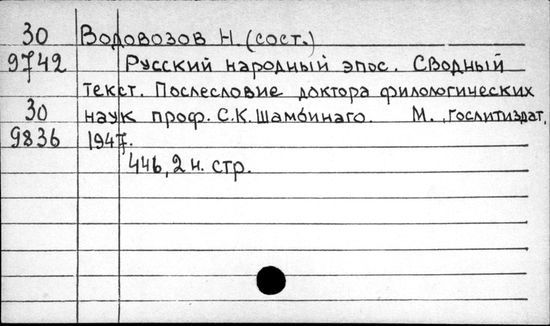 30 Водовозов Н. (сост.)
9742 Русский народный эпос. Сводный
текст. Послесловие доктора филологических
30 наук проф. С.К. Шамбинаго. М., Гослитиздат,
9836 1947.
446, 2 н. стр.